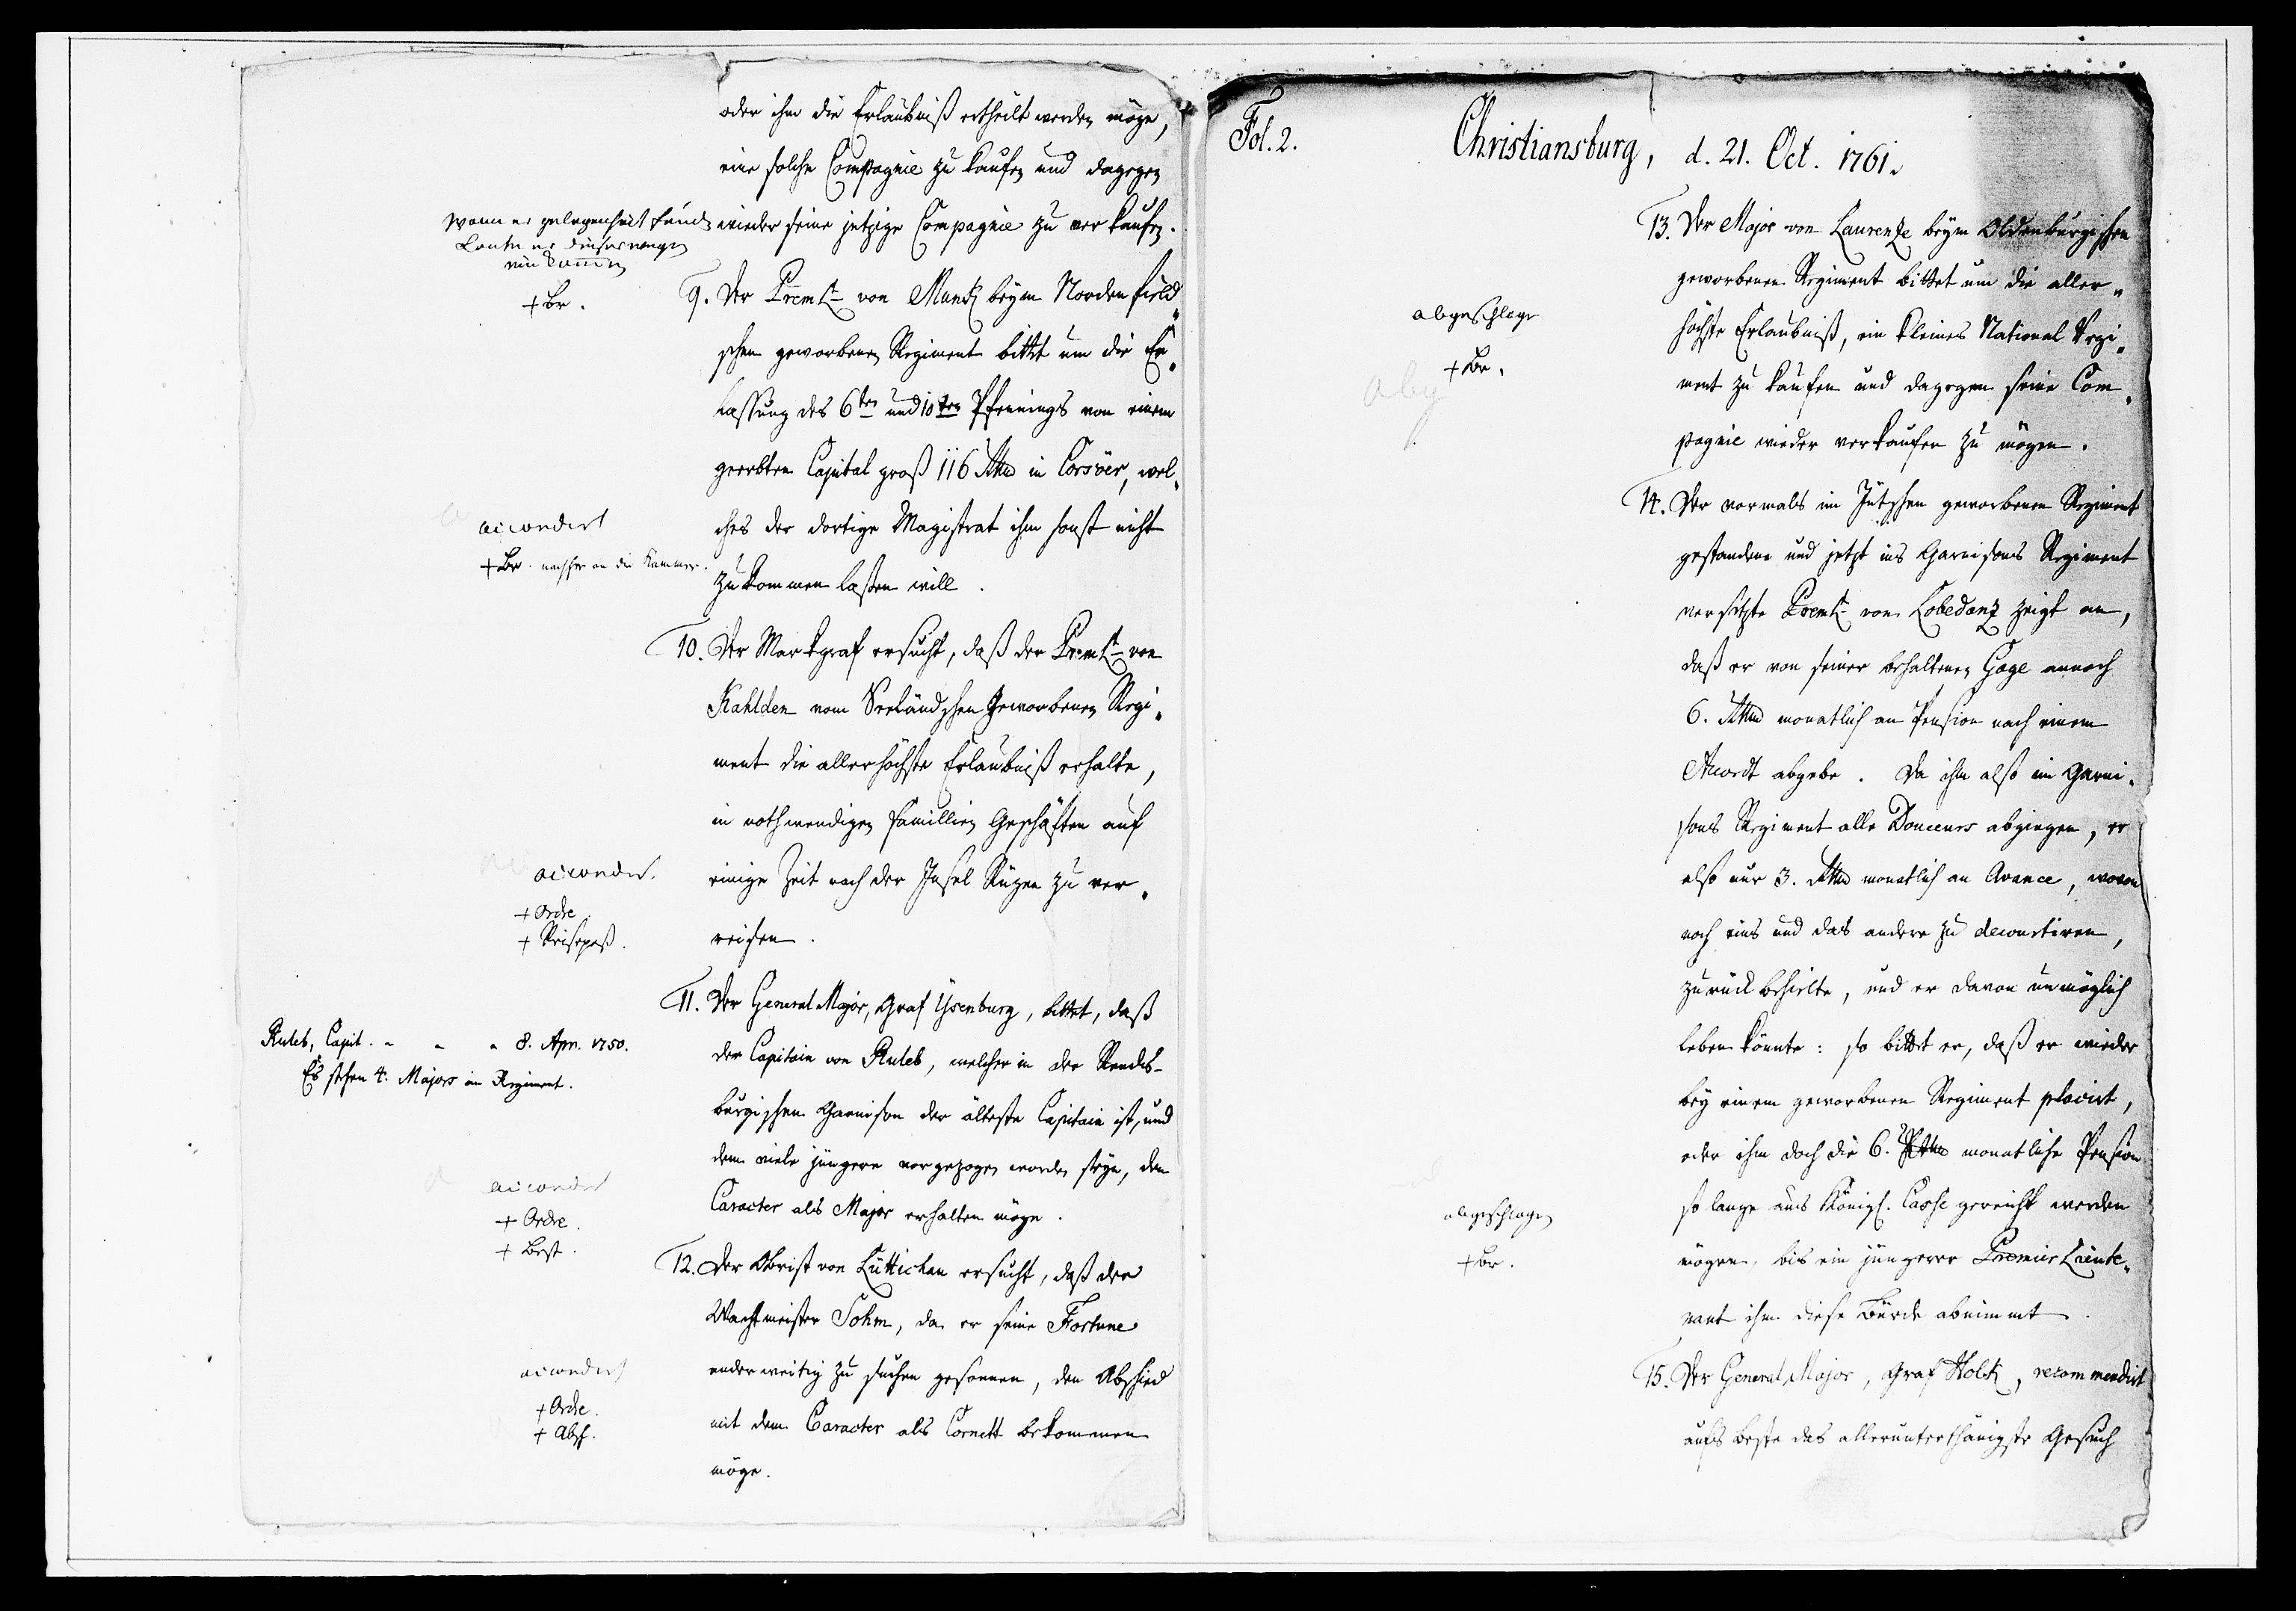 oder ihm die Erlaubniß ertheilt werden möge,
eine solche Compagnie zu kaufen und dagegen
wieder seine jetzige Compagnie zu verkaufen.
wann er gelegenheit
+ Br.
9. Der PremLt von Munck beym Nordenfield„
schen geworbenen Regiment bittet um die Er„
lassung des 6ten und 10ten Pfennings von einem
geerbten Capital groß 116 Rthlr in Corsöer, wel„
ches der dortige Magistrat ihm sonst nicht
zukommen laßen will.
accordirt
+ Br. nachher an die Kammer.
10. Der Markgraf ersucht, daß der PremLt von
Kahlden vom Seeländschen Geworbenen Regi„
ment die allerhöchste Erlaubniß erhalte,
in nothwendigen Famillien Geschäften auf
einige Zeit nach der Insel Rügen zu ver„
reisen.
accordirt.
+ Ordre.
+ Reisepaß.
11. Der General Major, Graf Ysenburg, bittet, daß
der Capitain von Ruleb, welcher in der Rends-
burgischen Garnison der älteste Capitain ist, und
dem viele jüngere vorgezogen worden seyn, den
Caracter als Major erhalten möge.
Ruleb, Capit. - - - 8. Apr. 1750.
Es stehen 4. Majors im Regiment.
accordirt
+ Ordre.
+ Best.
12. Der Obrist von Lüttichau ersucht, daß der
Wachtmeister Sohm, da er seine Fortune
anderweitig zu suchen gesonnen, den Abschied
mit dem Caracter als Cornett bekommen
möge.
accordirt
+ Ordre.
+ Absch.
Fol. 2.
Christiansburg, d. 21. Oct. 1761.
13. Der Major von Laurenze beym Oldenburgischen
geworbenen Regiment bittet um die aller„
höchste Erlaubniß, ein kleines National Regi„
ment zu kaufen und dagegen seine Com„
pagnie wieder verkaufen zu mögen.
abgeschlagen
+ Br.
14. Der vormals im Jütschen geworbenen Regiment
gestandene und jetzt ins Garnisons Regiment
versetzte PremLt von Lobedanz zeigt an,
daß er von seiner behaltenen Gage annoch
6. Rthlr monatlich an Pension nach einem
Accordt abgebe. Da ihm also im Garni„
sons Regiment alle Douceurs abgingen, er
also nur 3. Rthlr monatlich an Avance, wovon
noch eins und das andere zu decourtiren,
zurück behielte, und er davon unmöglich
leben könnte: so bittet er, daß er wieder
bey einem geworbenen Regiment placirt,
oder ihm doch die 6. Rthlr monatliche Pension
so lange aus Königl. Casse gereicht werden
mögen, bis ein jüngerer Premier Lieute„
nant ihm diese Bürde abnimmt.
abgeschlagen
+ Br.
15. Der General Major, Graf Holck, recommendirt
aufs beste das allerunterthänigste Gesuch